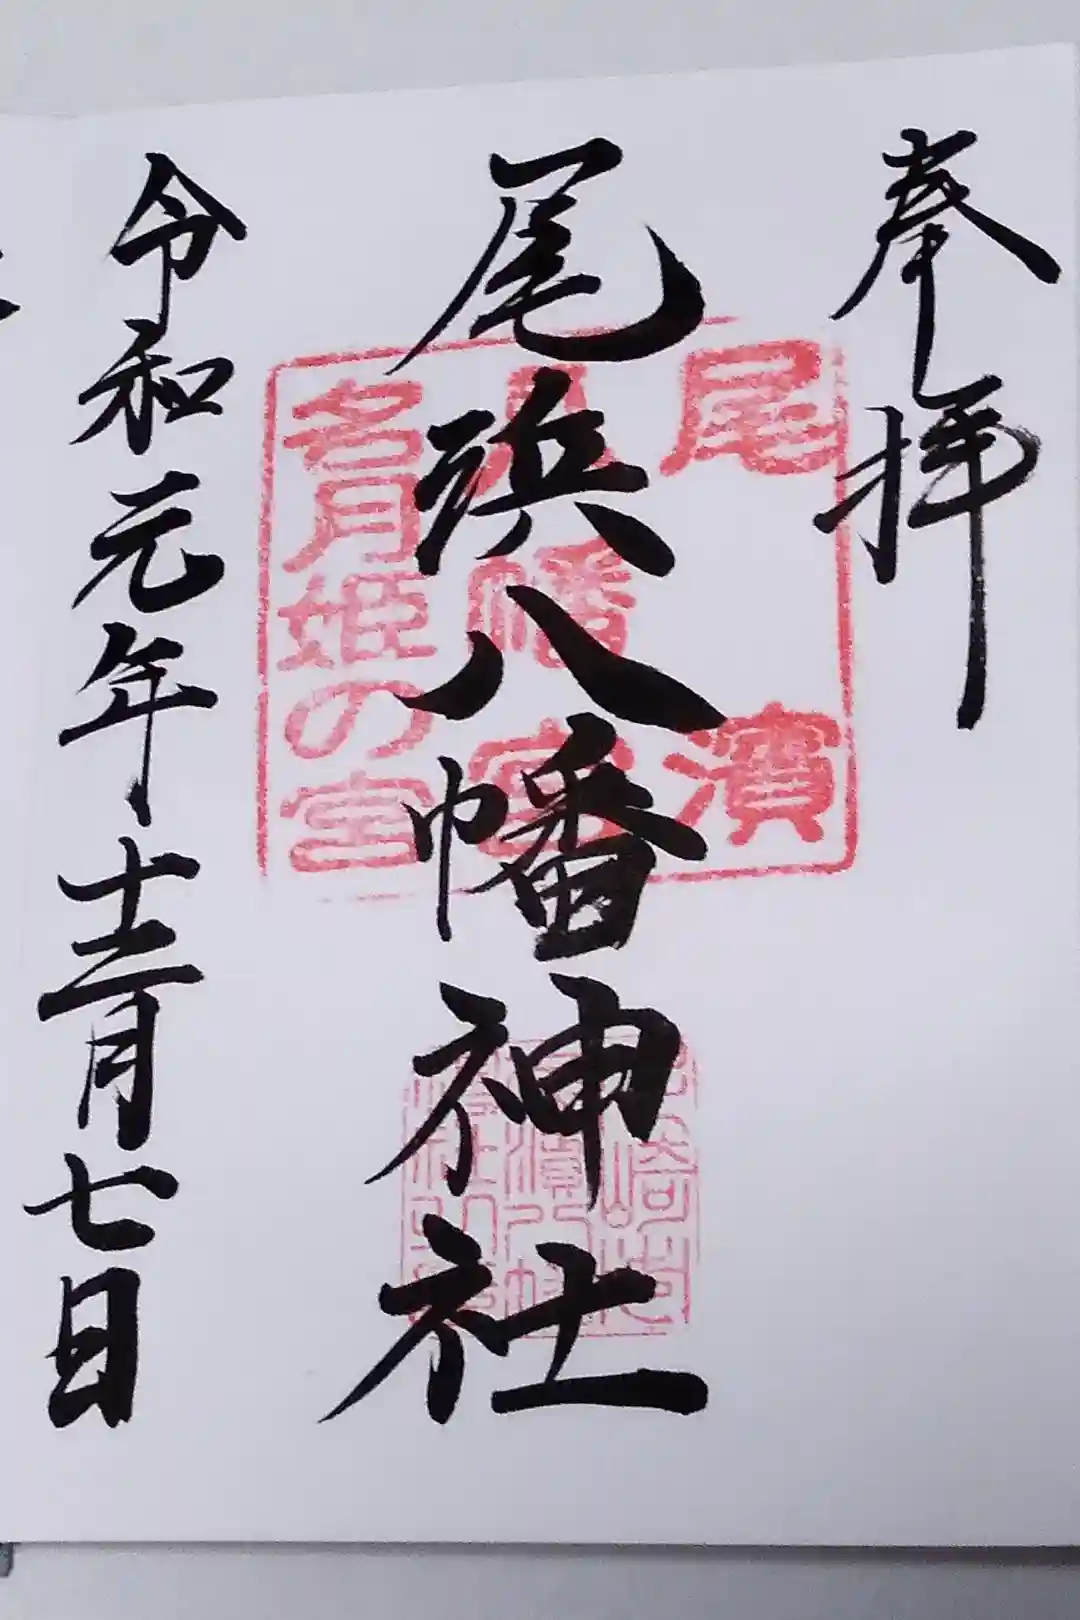 奉拝
尾浜八幡神社
令和元年十二月七日
尾濱
八幡宮
名月姫の宮